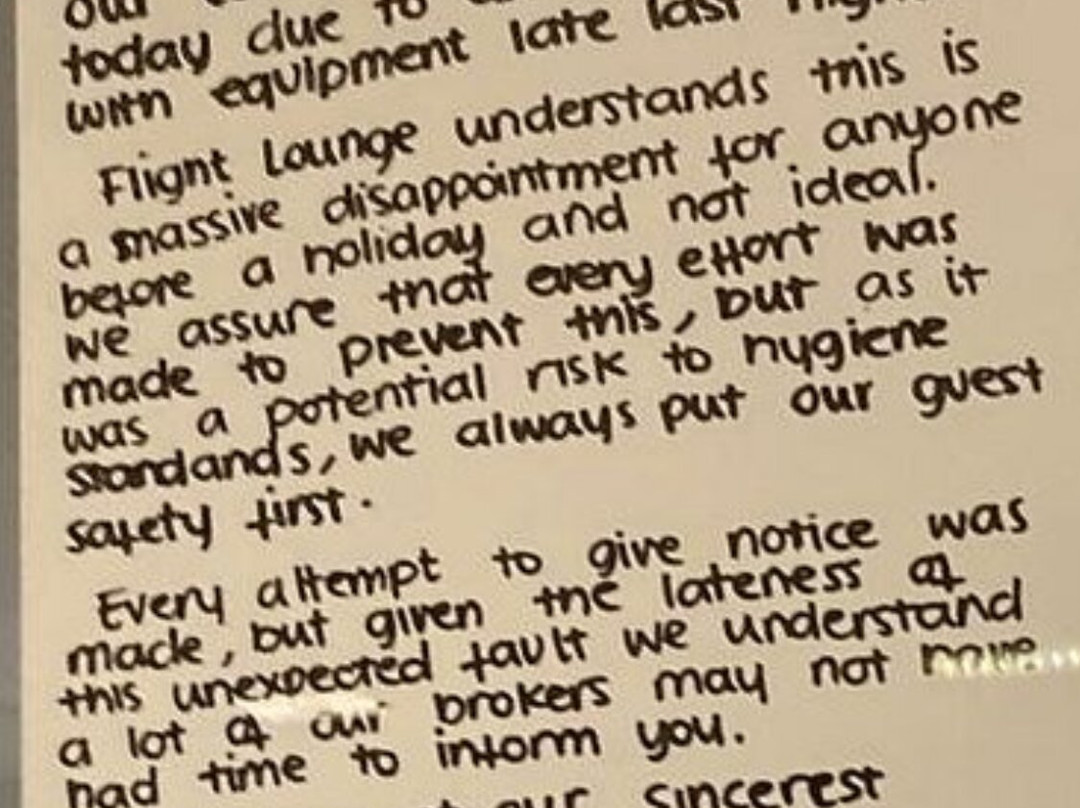 our
today due to
with equipment late last night
Flight Lounge understands this is
a massive disappointment for anyone
before a holiday and not ideal.
we assure that every effort was
made to prevent this, but as it
was a potential risk to hygiene
standards, we always put our guest
safety first.
Every attempt to give notice was
made, but given the lateness of
this unexpected fault we understand
a lot of our brokers may not have
had time to inform you.
our sincerest